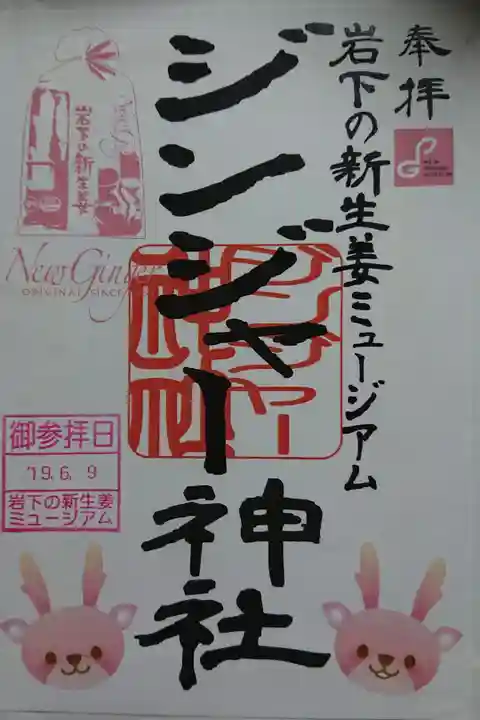 奉拝
岩下の新生姜ミュージアム
ジンジャー神社
ジンジャー
神社
岩下の新生姜
New Ginger
ORIGINAL SINCE
御参拝日
'19.6.9
岩下の新生姜
ミュージアム